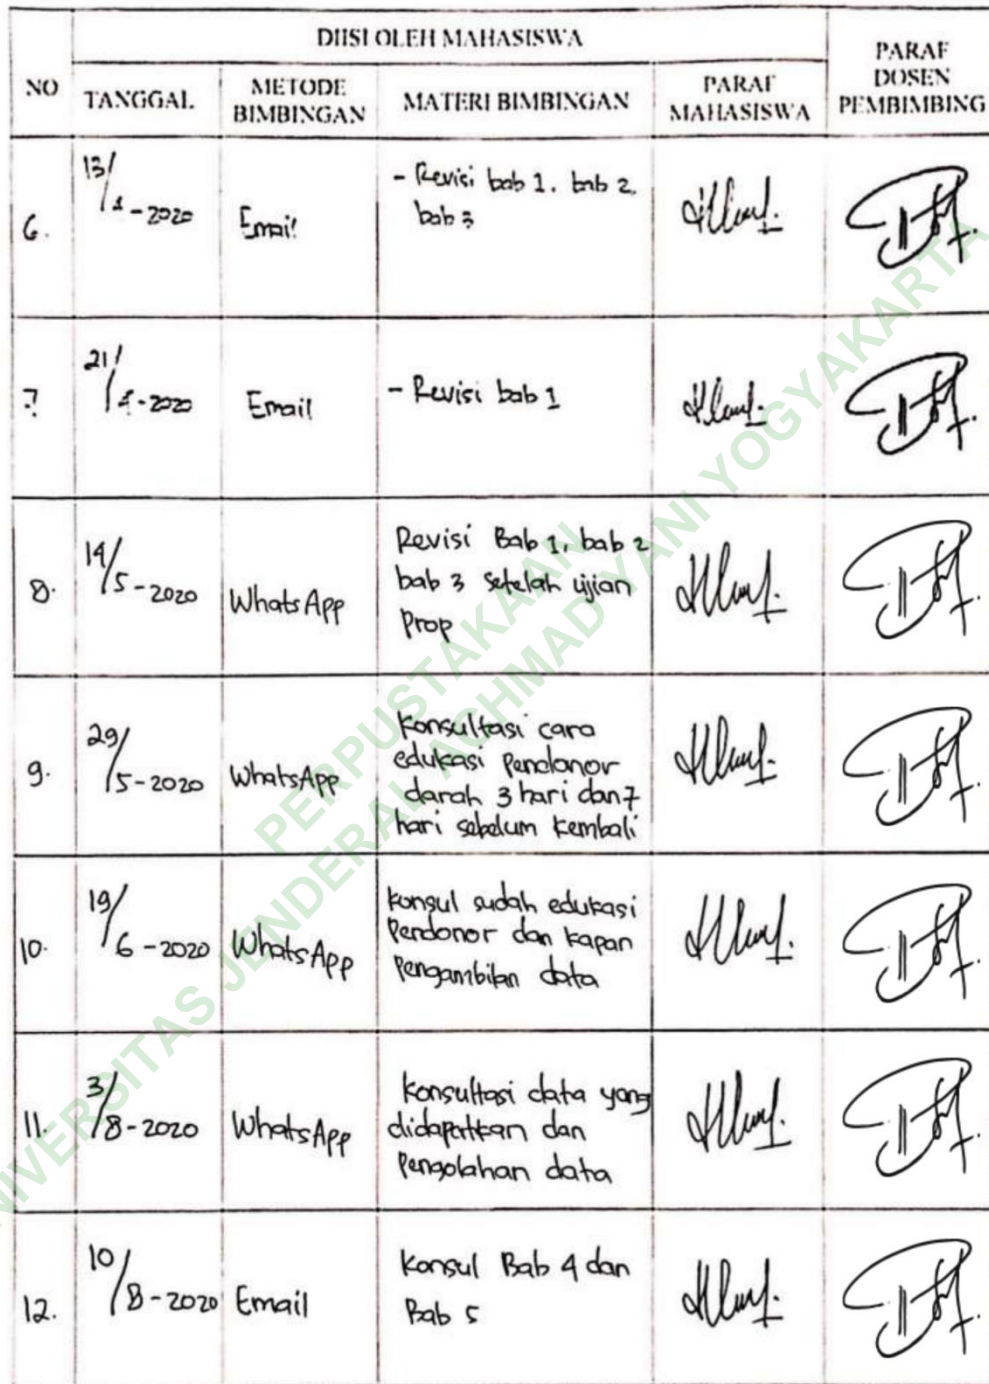 DIISI OLEH MAHASISWA
NO
TANGGAL
METODE
BIMBINGAN
MATERI BIMBINGAN
PARAF
MAHASISWA
PARAF
DOSEN
PEMBIMBING
6.
13/
-2020
Email
- Revisi bab 1. bab 2.
bab 3
7
21/
4-2020
Email
- Revisi bab 1
8.
14/
5-2020
WhatsApp
Revisi Bab 1, bab 2
bab 3 setelah ujian
prop
9.
29/
5-2020
WhatsApp
Konsultasi cara
edukasi Pendonor
darah 3 hari dan 7
hari sebelum kembali
10.
19/
6-2020
WhatsApp
konsul sudah edukasi
Pendonor dan kapan
Pengambilan data
11.
3/
8-2020
WhatsApp
konsultasi data yang
didapatkan dan
Pengolahan data
12.
10/
8-2020
Email
konsul Bab 4 dan
Bab 5
PERPUSTAKAAN
UNIVERSITAS JENDERAL ACHMAD YANI YOGYAKARTA